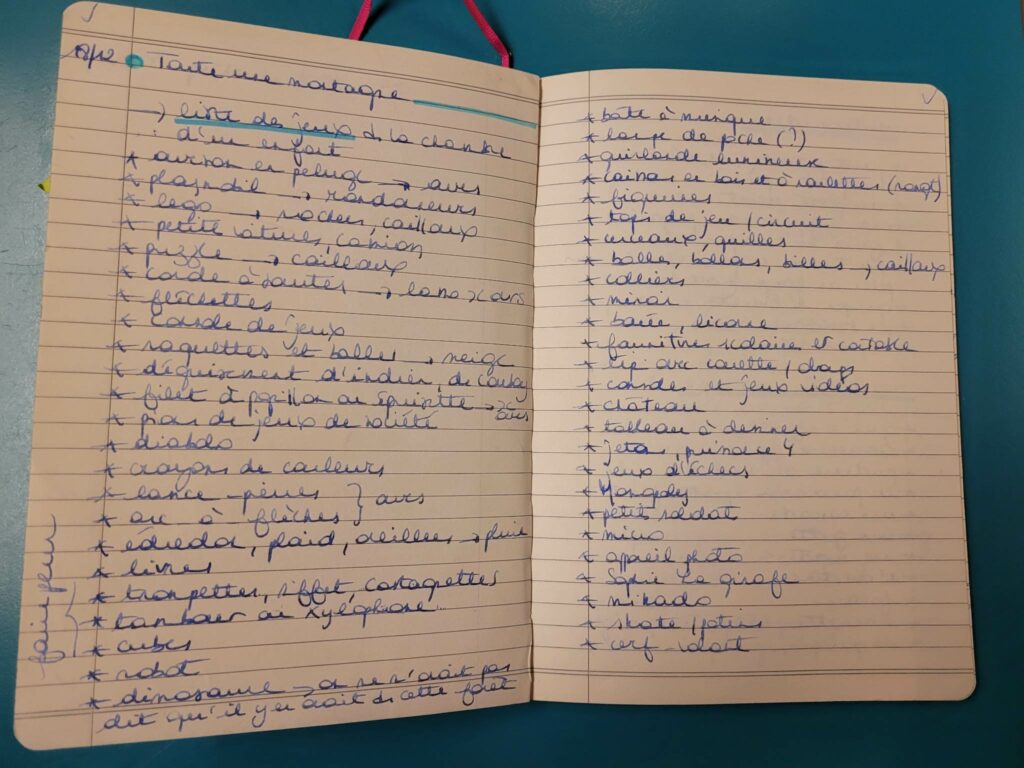 18/12 Toute une montagne
→ liste des jeux ds la chambre
d'un enfant
* avion en peluche → ours
* playmobil → randonneurs
* lego → rochers, cailloux
* petite voitures, camion
* puzzle → cailloux
* corde à sauter → lasso > ours
* fléchettes
* console de jeux
* raquettes et balles → neige
* déguisement d'indien, de cowboy
* filet à papillon ou épuisette → ours
* pions de jeux de société
* diabolo
* crayons de couleurs
* lance-pierres } ours
* arc à flèches
* édredon, plaid, oreillers → pluie
* livres
* trompettes, sifflet, castagnettes
* tambour ou xylophone
* cubes
* robot
* dinosaure → on ne n'avait pas
dit qu'il y en avait ds cette forêt
faire fleur
* boîte à musique
* lampe de poche (?)
* guirlande lumineuse
* en bois et à roulettes
* figurines
* tapis de jeu / circuit
* cerceaux, quilles
* balles, ballons, billes → cailloux
* colliers
* miroir
* licorne
* fournitures scolaire et cartable
* avec
* consoles et jeux vidéos
* château
* tableau à dessiner
* jetons, puissance 4
* jeux d'échecs
* Monopoly
* petits soldats
* micro
* appareil photo
* Sophie La girafe
* mikado
* skate / patins
* cerf-volant